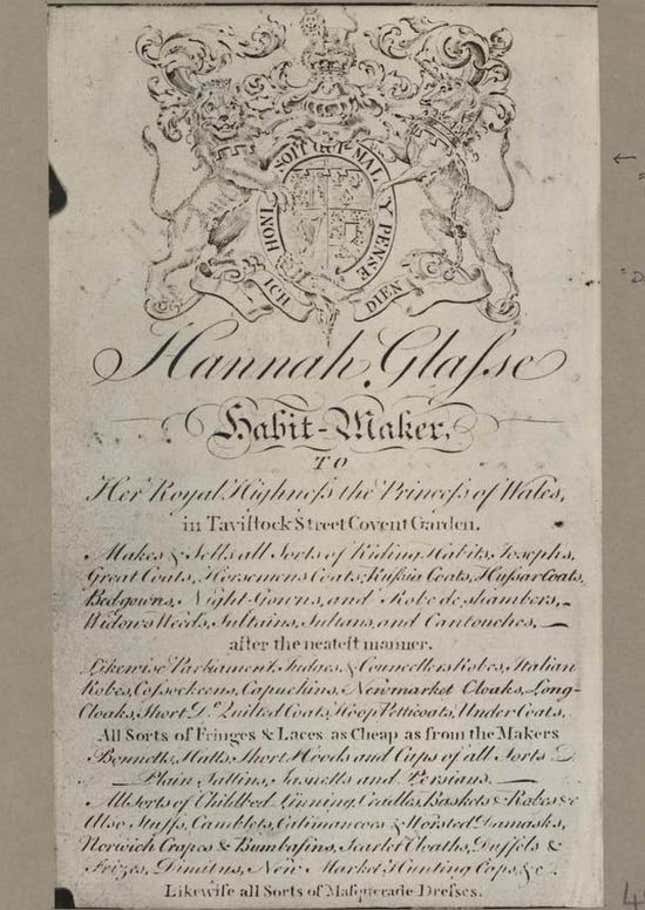 HONI SOIT QUI MAL Y PENSE
ICH DIEN
Hannah Glaſse
Habit-Maker,
TO
Her Royal Highneſs the Princeſs of Wales,
in Taviſtock Street Covent Garden.
Makes & Sells all Sorts of Riding Habits, Josephs,
Great Coats, Horsemens Coats, Ruſsia Coats, Huſsar Coats,
Bedgowns, Night-Gowns, and Robe de shambers,
Widows Weeds, Sultains, Sultans, and Cantouches,
after the neateſt manner.
Likewise Parliament, Judges, & Councellers Robes, Italian
Robes, Coſsockeens, Capuchins, Newmarket Cloaks, Long-
Cloaks, Short Do. Quilted Coats, Hoop Petticoats, Under Coats,
All Sorts of Fringes & Laces as Cheap as from the Makers
Bonnetts, Hatts, Short Hoods and Caps of all Sorts
Plain Sattins, Sasnetts and Persians.
All Sorts of Childbed Linning, Cradles, Baskets & Robes &c
Also Stuffs, Camblets, Calimancoes & Worsted Damasks,
Norwich Crapes & Bumbasins, Scarlet Cloaths, Duffels &
Frizes, Dimitys, New Market Hunting Caps, &c.
Likewiſe all Sorts of Maſquerade Dreſses.